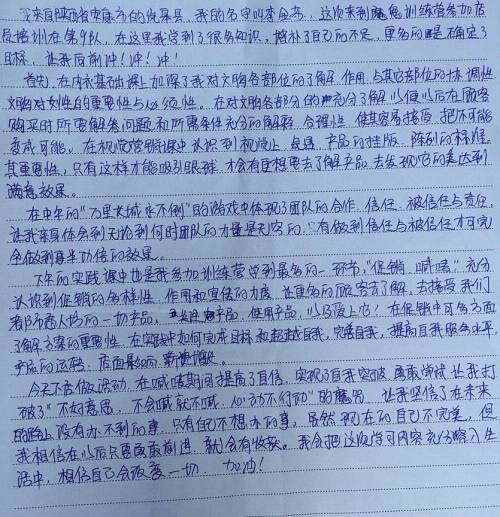 我来自陕西省安康市的紫阳县，我的名字叫李会苓，这次来到魔鬼训练营参加店
员培训在第9队，在这里我学到了很多知识，增补了自己的不足，更多的是确定了
目标，让我后前冲！冲！冲！
首先，在内衣基础课上加深了我对文胸各部位的了解，作用，与其它部位的协调性
文胸对女性的重要性与必须性。在对文胸各部分的充分了解以便以后在顾客
购买时所要解答问题和所需条件充分的解释，合理性，使其容易接受，把不可能
变成可能。在视觉营销课中认识到视觉上，卖场，产品的挂版，陈列的标准，
其重要性，只有这样才能吸引眼球，才会有更想要去了解产品，去发现它的美达到
满意效果。
在中午的“万里长城永不倒”的游戏中体现了团队的合作，信任，被信任与责任，
让我亲身体会到无论到何时团队的力量是无穷的，只有做到信任与被信任才可完
全做到事半功倍的效果。
下午的实践课中也是我参加训练营学到最多的一环节，“促销，喊啥”充分
认识到促销的多样性，作用和宣传的力度，让更多的顾客去了解，去接受我们
都市丽人场的一切产品，产品，使用产品，以及爱上它！在促销中可多方面
了解方案的重要性，在实践中如何完成目标和超越自我，完善自我，提高自我服务水平，
产品的运转，店面影响
今天不舌做活动，在喊啥期间提高了自信，实现了自我突破，勇敢尝试，让我打
破了“不好意思，不会喊就不喊，心动不行动”的魔咒，让我坚信了在未来
的路上没有办不到的事，只有自己不想办的事，虽然现在的自己不完美，但
我相信在以后只要勇敢前进，就会有收获。我会把这次学习内容充分溶入生
活中，相信自己会改变一切。加油！